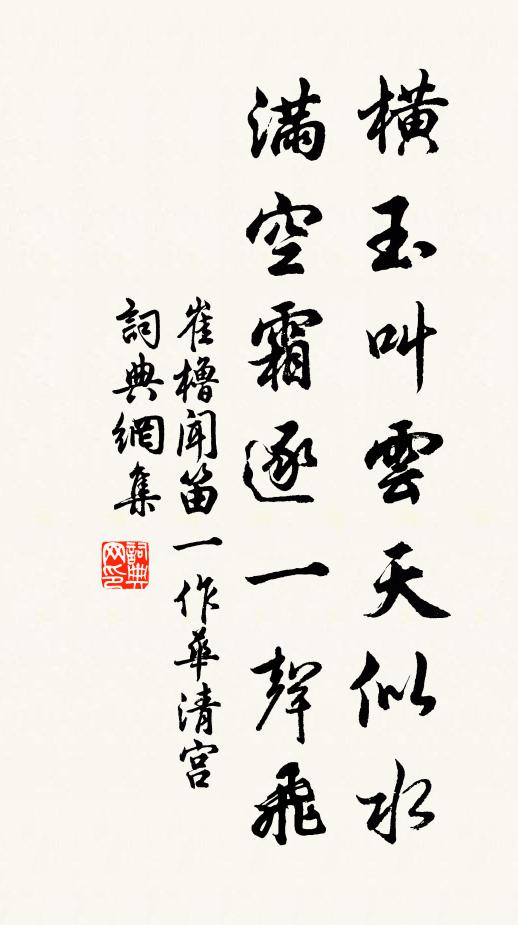 橫玉叫雲天似水
滿空霜逐一聲飛
崔櫓聞笛一作華清宮
詞典網集
詞典网印